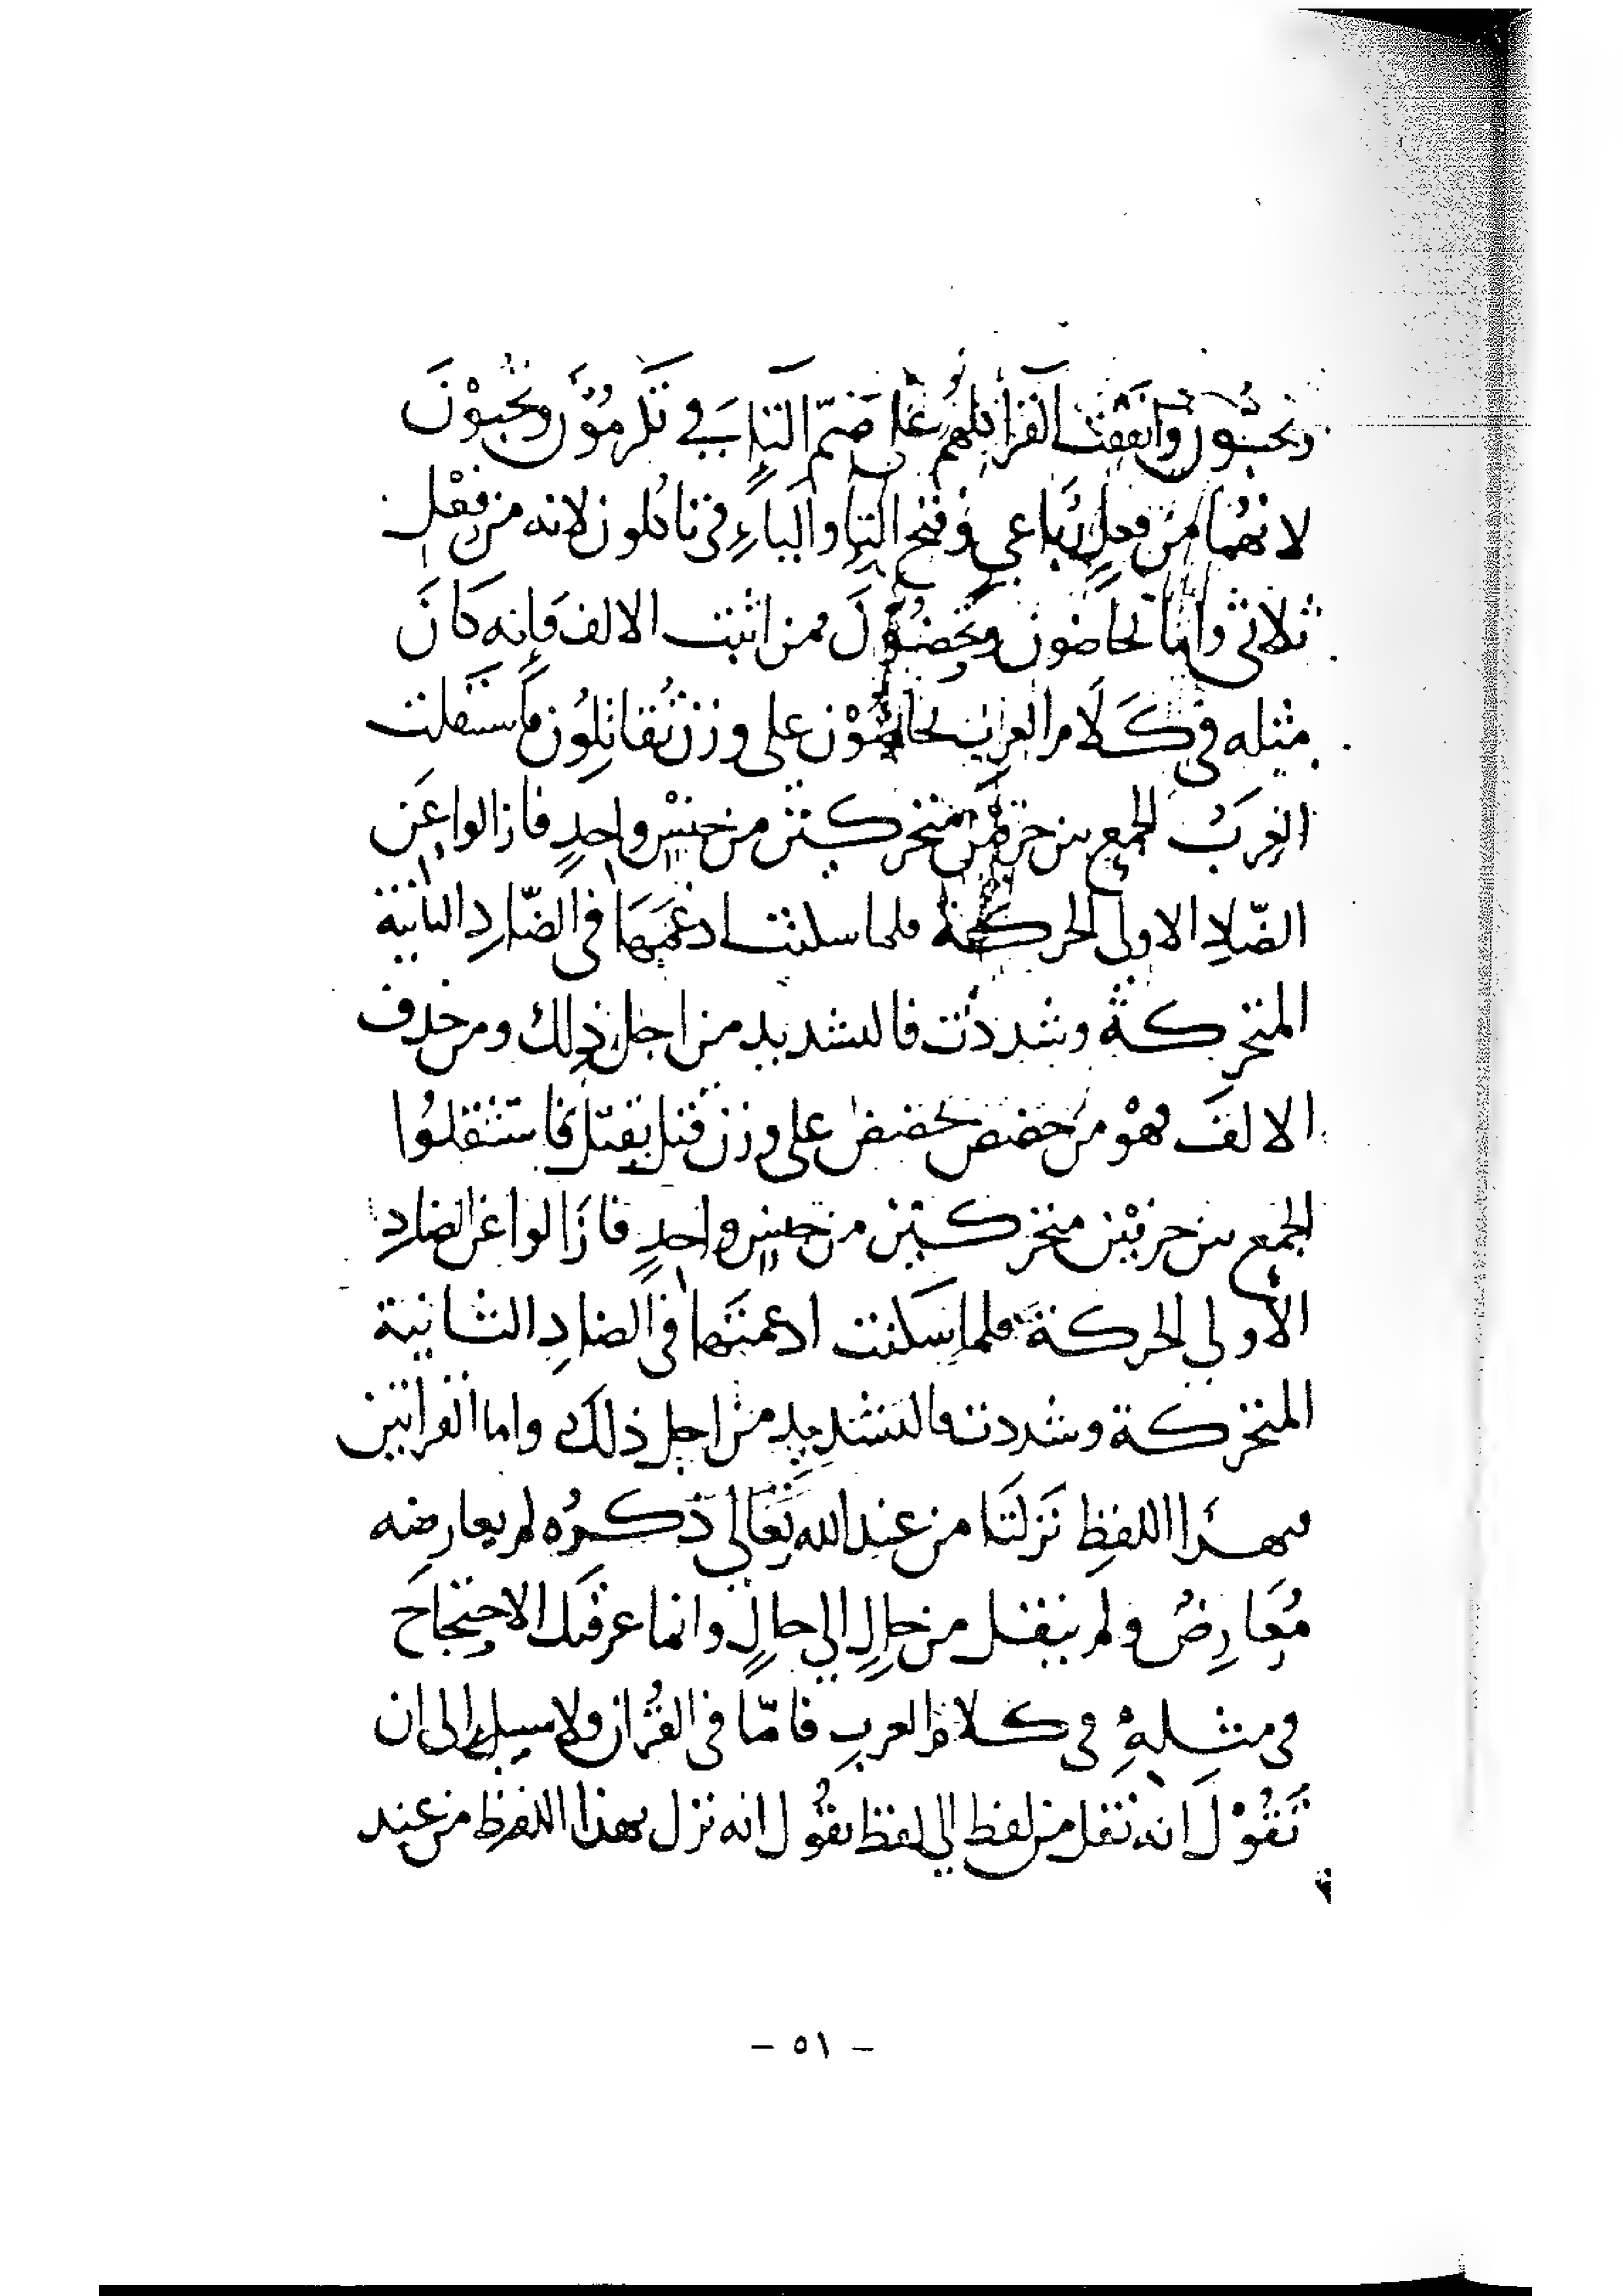 وتحبون واتفقت القرا كلهم على ضمّ التاء في تكرمون وتحبوْنَ
لانهُما من فعلٍ رُباعي وُفتح التاِ والياءِ في تاكلون لانه من فِعْل
ثلاثي واما تحاضون وتحضوُّنَ فمن اثبت الالف فإنه كانَ
مثله في كَلَام العرب تحاضضُوْن على وزن تُقاتِلُون فاستثقلت
العربُ الجمع بين حرفين متحركين من جنسْ واحدٍ فازالوا عَن
الضّاد الاولى الحركة فلما سكنت ادغمَتها في الضّادِ الثانية
المتحركة وشددت فالتشديد من اجل ذلك ومن حذف
الالفَ فهْو من حضض يحضض على وزن قتل يقتل فاستثقلوُا
الجمع بين حرفيْن متحركين من جنسٍ واحدٍ فازَالوا عن الضادِ
الأولى الحركة فلما سَكنت ادغمتَها في الضادِ الثانية
المتحركة وشددت فالتشديد من اجل ذلك واما القراتين
فبهذا اللفظِ نَزلتَا من عند الله تَعَالى ذكرُه لم يعارضه
مُعَارِضُ ولم ينقل من حالٍ الى حالٍ وانما عرفتك الاحتجاح
في مثلهِ في كلام العربِ فامّا في القُران فلا سبيل الى ان
تَقُوْلَ انه نقل من لفظ الى لفظ نقُول انه نزل بهذا اللفظِ من عند
- ٥١ -